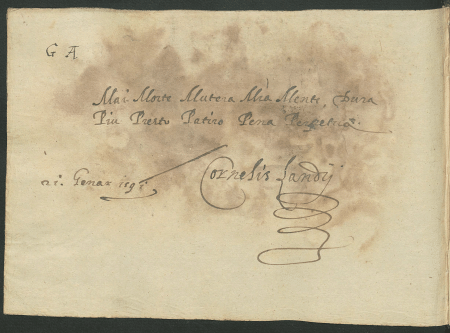 G A
Mai Morte Mutera Mia Mente pura
Piu Presto Patiro Pena Perpetua.
Genar
Cornelis Landij